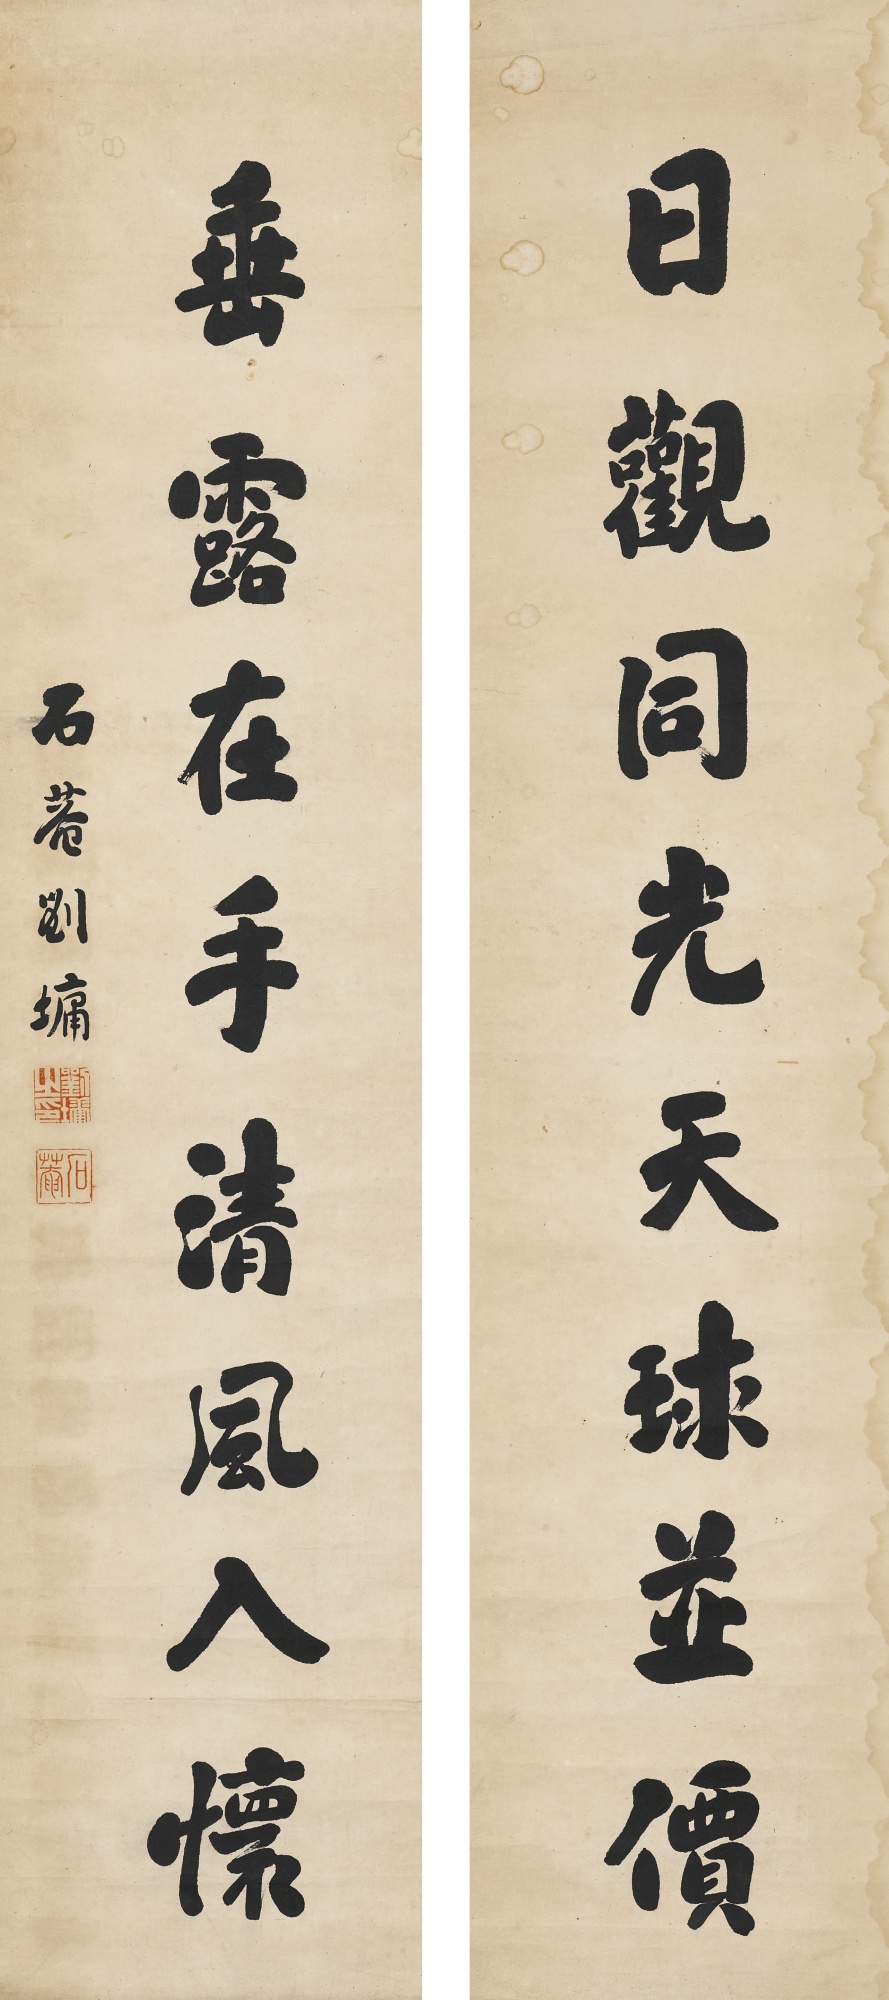 日觀同光天球並價
垂露在手清風入懷
石菴劉墉
劉墉之印
石菴